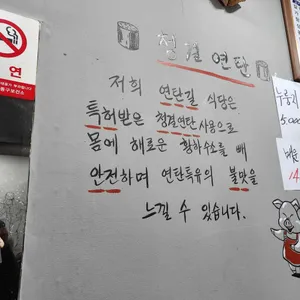 청결 연탄
저희 연탄길 식당은
특허받은 청결연탄 사용으로
몸에 해로운 황화수소를 빼
안전하며 연탄특유의 불맛을
느낄 수 있습니다.
연
누룽지
5,000